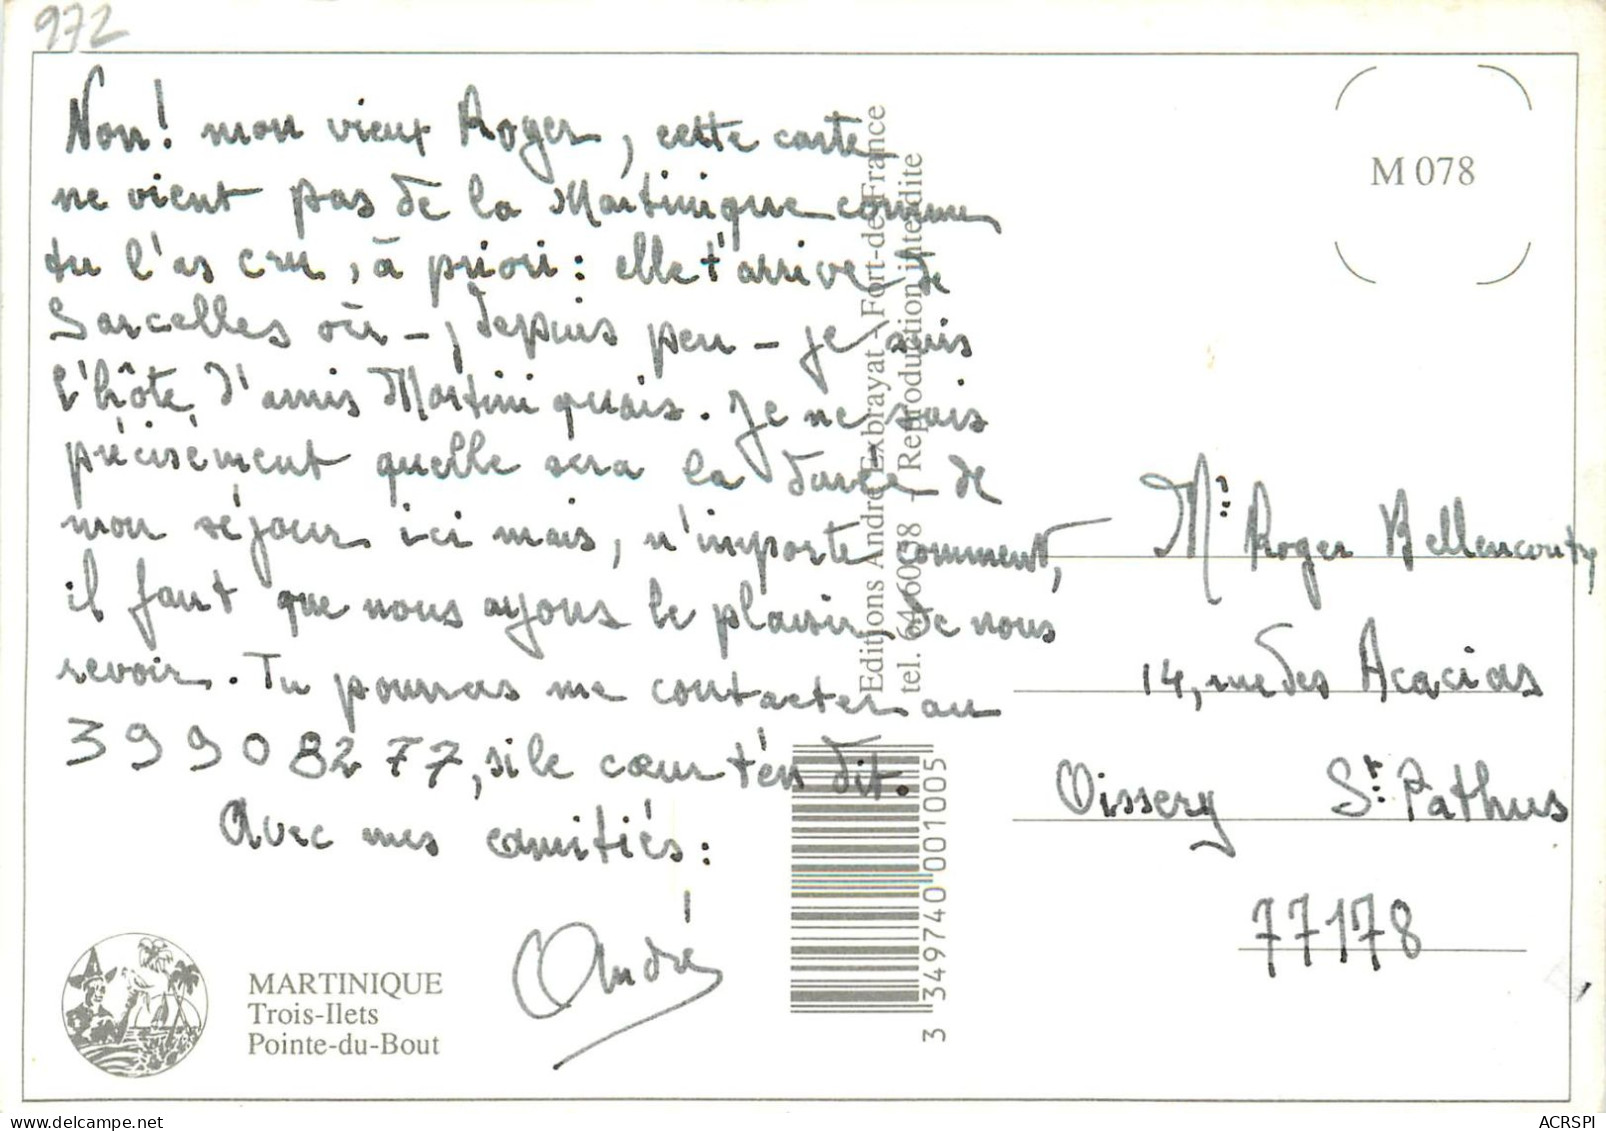 972
Non! mon vieux Roger, cette carte
ne vient pas de la Martinique comme
tu l'as cru, à priori: elle t'arrive de
Sarcelles où -, depuis peu - je suis
l'hôte, d'amis Martiniquais. Je ne sais
précisément quelle sera la durée de
mon séjour ici mais, n'importe comment,
il faut que nous ayons le plaisir de nous
revoir. Tu pourras me contacter au
39908277, si le cœur t'en dit.
Avec mes amitiés:
André
MARTINIQUE
Trois-Ilets
Pointe-du-Bout
Editions André Exbrayat - Fort-de-France
tel. 646058 - Reproduction interdite
3 349740 001005
M 078
Mr Roger Bellencontre
14, rue des Acacias
Oissery St Pathus
77178
ACRSPI